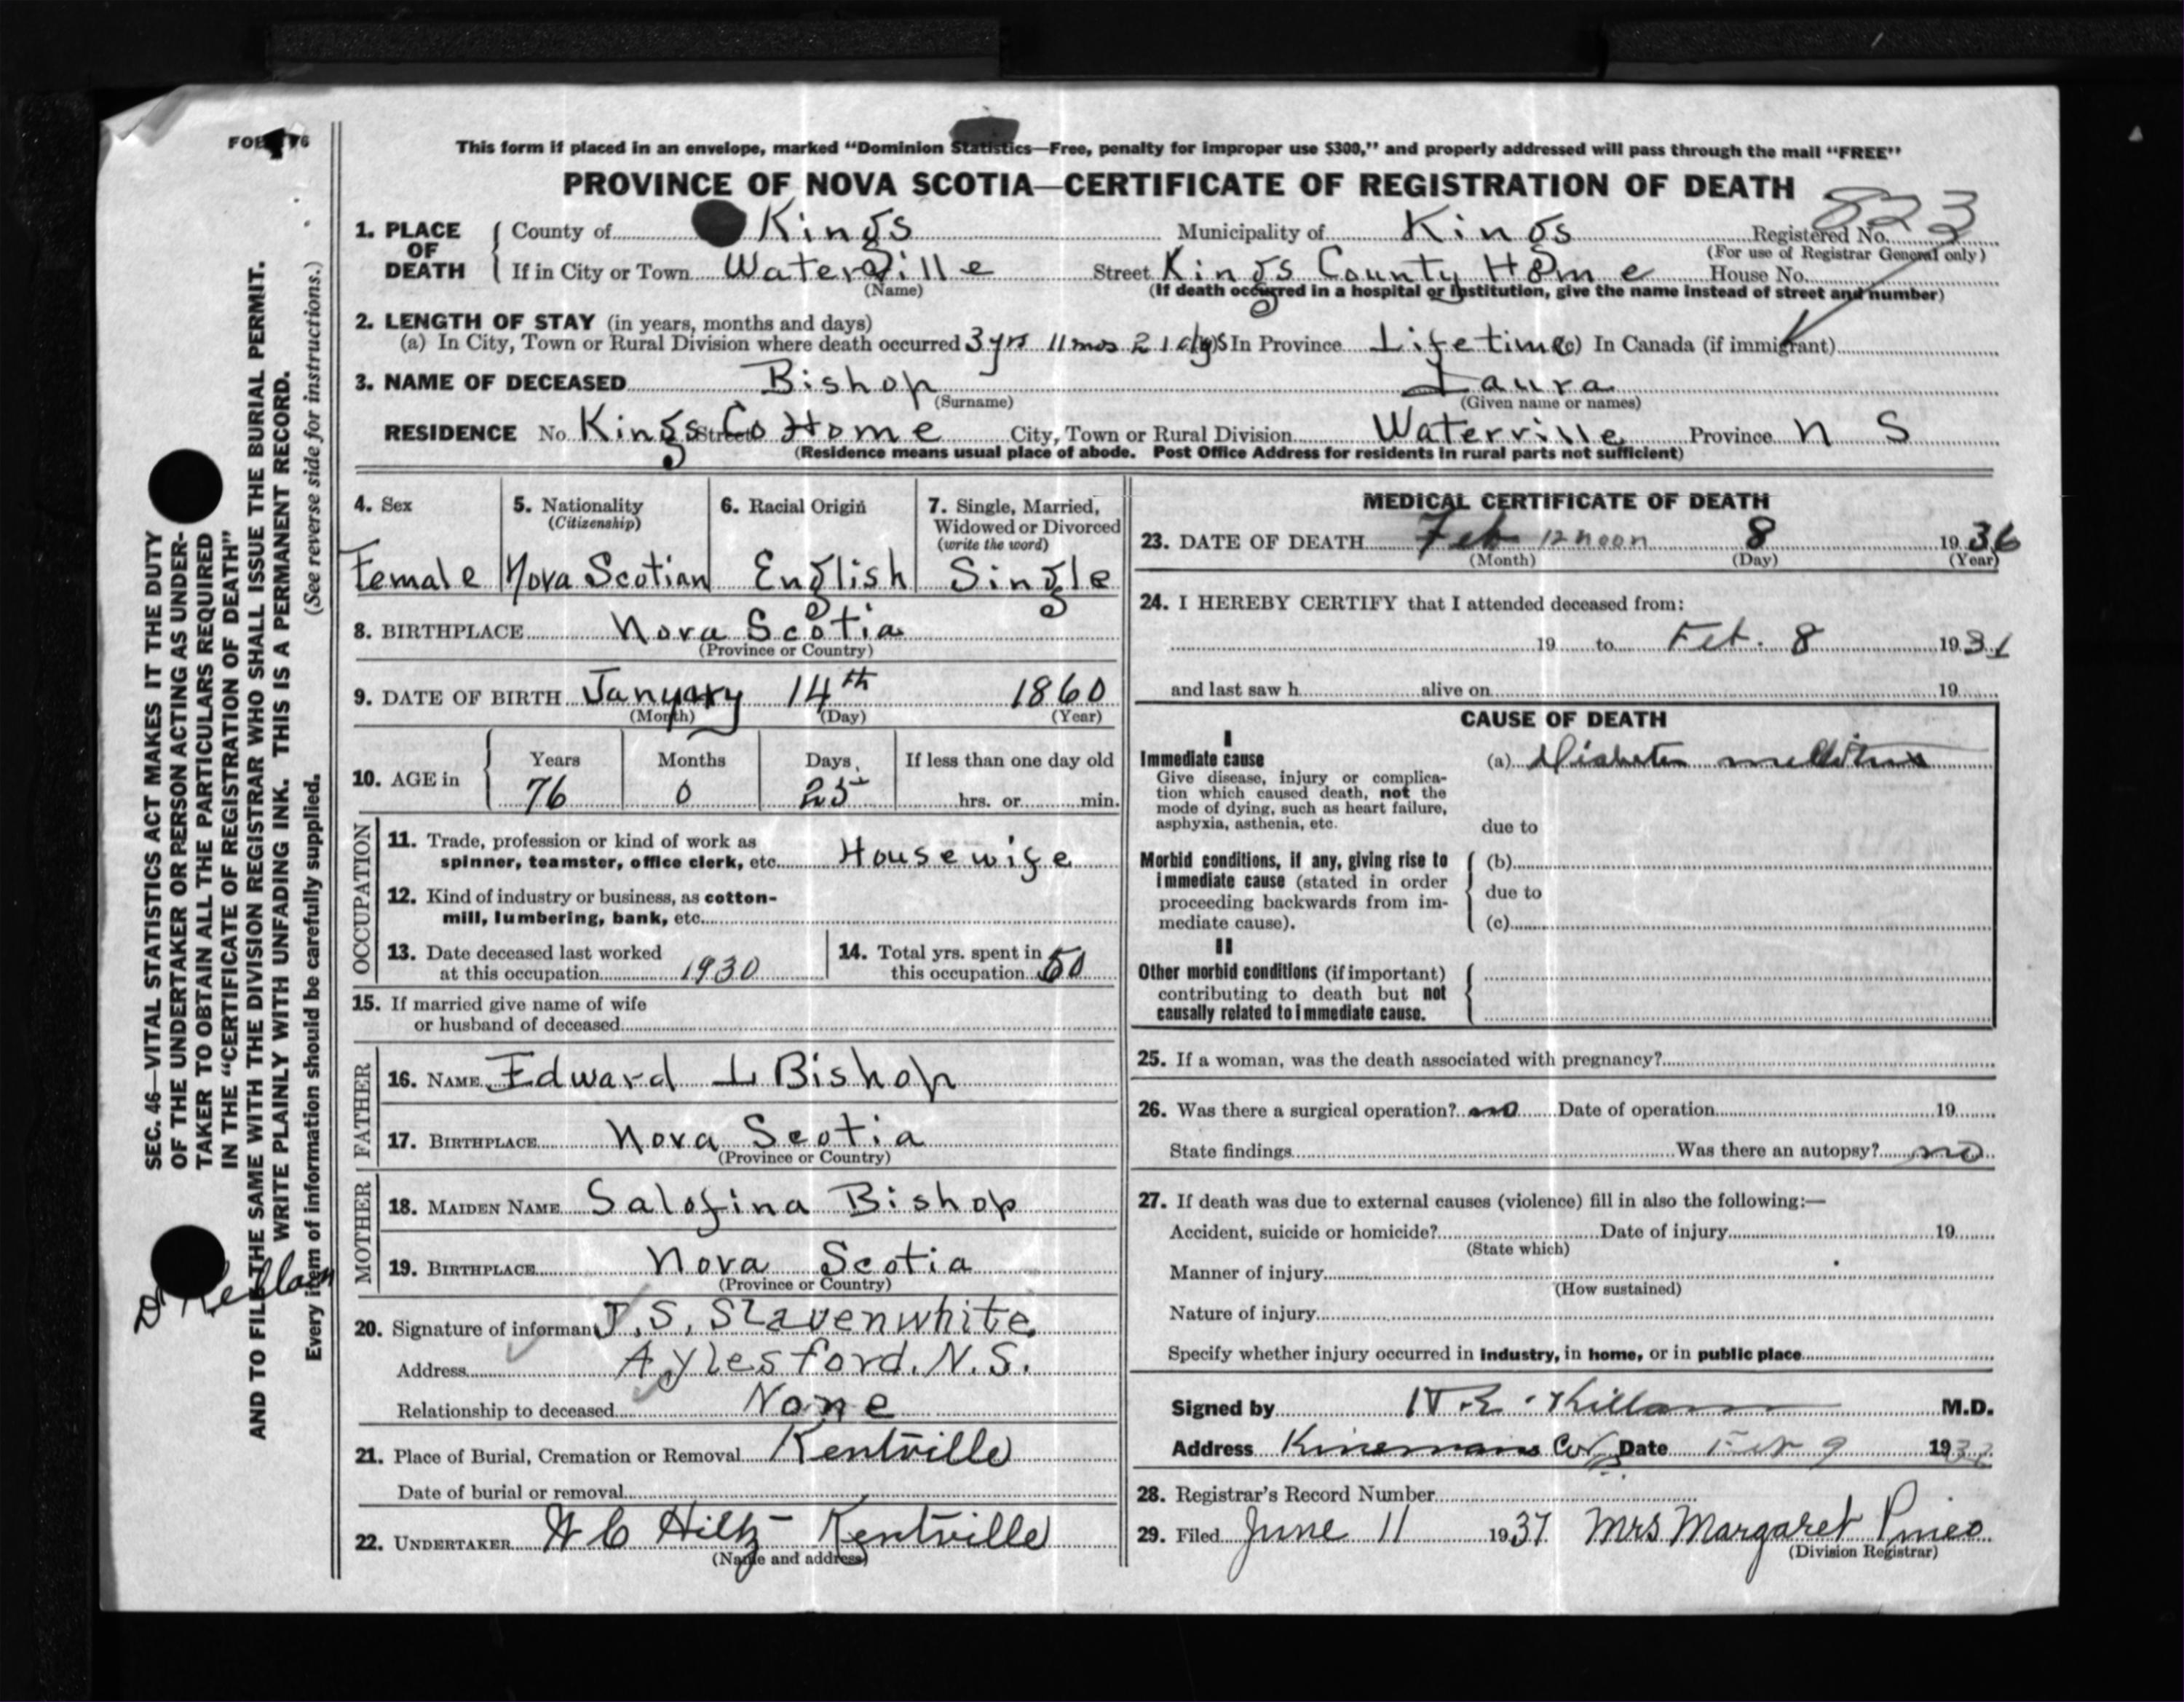 This form if placed in an envelope, marked "Dominion Statistics—Free, penalty for improper use $300," and properly addressed will pass through the mail "FREE"
PROVINCE OF NOVA SCOTIA—CERTIFICATE OF REGISTRATION OF DEATH
823
1. PLACE OF DEATH County of Kings Municipality of Kings Registered No.
(For use of Registrar General only)
If in City or Town Waterville Street Kings County Home House No.
(Name) (If death occurred in a hospital or institution, give the name instead of street and number)
2. LENGTH OF STAY (in years, months and days)
(a) In City, Town or Rural Division where death occurred 3 yrs 11 mos 21 dys In Province Lifetime (c) In Canada (if immigrant)
3. NAME OF DECEASED Bishop Laura
(Surname) (Given name or names)
RESIDENCE No. Kings Street Co Home City, Town or Rural Division Waterville Province N S
(Residence means usual place of abode. Post Office Address for residents in rural parts not sufficient)
4. Sex 5. Nationality 6. Racial Origin 7. Single, Married,
(Citizenship) Widowed or Divorced
(write the word)
Female Nova Scotian English Single
8. BIRTHPLACE Nova Scotia
(Province or Country)
9. DATE OF BIRTH January 14th 1860
(Month) (Day) (Year)
10. AGE in Years Months Days If less than one day old
76 0 25 hrs. or min.
OCCUPATION
11. Trade, profession or kind of work as
spinner, teamster, office clerk, etc. Housewife
12. Kind of industry or business, as cotton-
mill, lumbering, bank, etc.
13. Date deceased last worked
at this occupation 1930
14. Total yrs. spent in
this occupation 50
15. If married give name of wife
or husband of deceased
FATHER
16. NAME Edward L Bishop
17. BIRTHPLACE Nova Scotia
(Province or Country)
MOTHER
18. MAIDEN NAME Salofina Bishop
19. BIRTHPLACE Nova Scotia
(Province or Country)
20. Signature of informant J. S. Slavenwhite.
Address Aylesford. N.S.
Relationship to deceased None
21. Place of Burial, Cremation or Removal Kentville
Date of burial or removal
22. UNDERTAKER W C Hiltz - Kentville
(Name and address)
MEDICAL CERTIFICATE OF DEATH
23. DATE OF DEATH Feb 12 noon 8 1936
(Month) (Day) (Year)
24. I HEREBY CERTIFY that I attended deceased from:
19 to Feb. 8 19
and last saw h alive on 19
CAUSE OF DEATH
I
Immediate cause (a) Diabetes mellitus
Give disease, injury or complica-
tion which caused death, not the
mode of dying, such as heart failure,
asphyxia, asthenia, etc.
due to
Morbid conditions, if any, giving rise to (b)
immediate cause (stated in order
proceeding backwards from im- due to
mediate cause). (c)
II
Other morbid conditions (if important)
contributing to death but not
causally related to immediate cause.
25. If a woman, was the death associated with pregnancy?
26. Was there a surgical operation? no Date of operation 19
State findings Was there an autopsy? no
27. If death was due to external causes (violence) fill in also the following:—
Accident, suicide or homicide? Date of injury 19
(State which)
Manner of injury
(How sustained)
Nature of injury
Specify whether injury occurred in industry, in home, or in public place
Signed by Killam M.D.
Address Date Feb 9 193
28. Registrar's Record Number
29. Filed June 11 1937 Mrs Margaret Pineo
(Division Registrar)
SEC. 46—VITAL STATISTICS ACT MAKES IT THE DUTY
OF THE UNDERTAKER OR PERSON ACTING AS UNDER-
TAKER TO OBTAIN ALL THE PARTICULARS REQUIRED
IN THE "CERTIFICATE OF REGISTRATION OF DEATH"
AND TO FILE THE SAME WITH THE DIVISION REGISTRAR WHO SHALL ISSUE THE BURIAL PERMIT.
WRITE PLAINLY WITH UNFADING INK. THIS IS A PERMANENT RECORD.
Every item of information should be carefully supplied. (See reverse side for instructions.)
Dr Killam